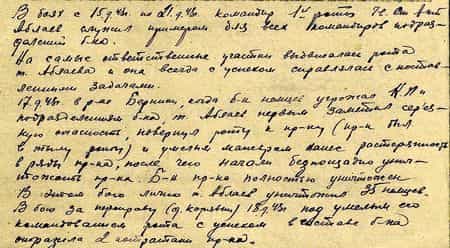 В боях с 15.9.43г. по 21.9.43г. командир 1й роты
Абгаев служил примером для всех командиров подраз-
делений б-на.
На самые ответственные участки выдвигалась рота
т. Абгаева и она всегда с успехом справлялась с постав-
ленными задачами.
17.9.43г в р-не когда б-н немцев угрожал К.П. и
подразделениям б-на, т. Абгаев первым заметил серьез-
ную опасность, повернул роту к пр-ку (пр-к был
в тылу роты) и умелым маневром нанес растерянность
в ряды пр-ка, после чего начали беспощадно унич-
тожать пр-ка. Б-н пр-ка полностью уничтожен
В этом бою лично т. Абгаев уничтожил 35 немцев.
В бою за переправу (д. ) 18.9.43г под умелым его
командованием рота с успехом в составе б-на
отразила 2 контратаки пр-ка.